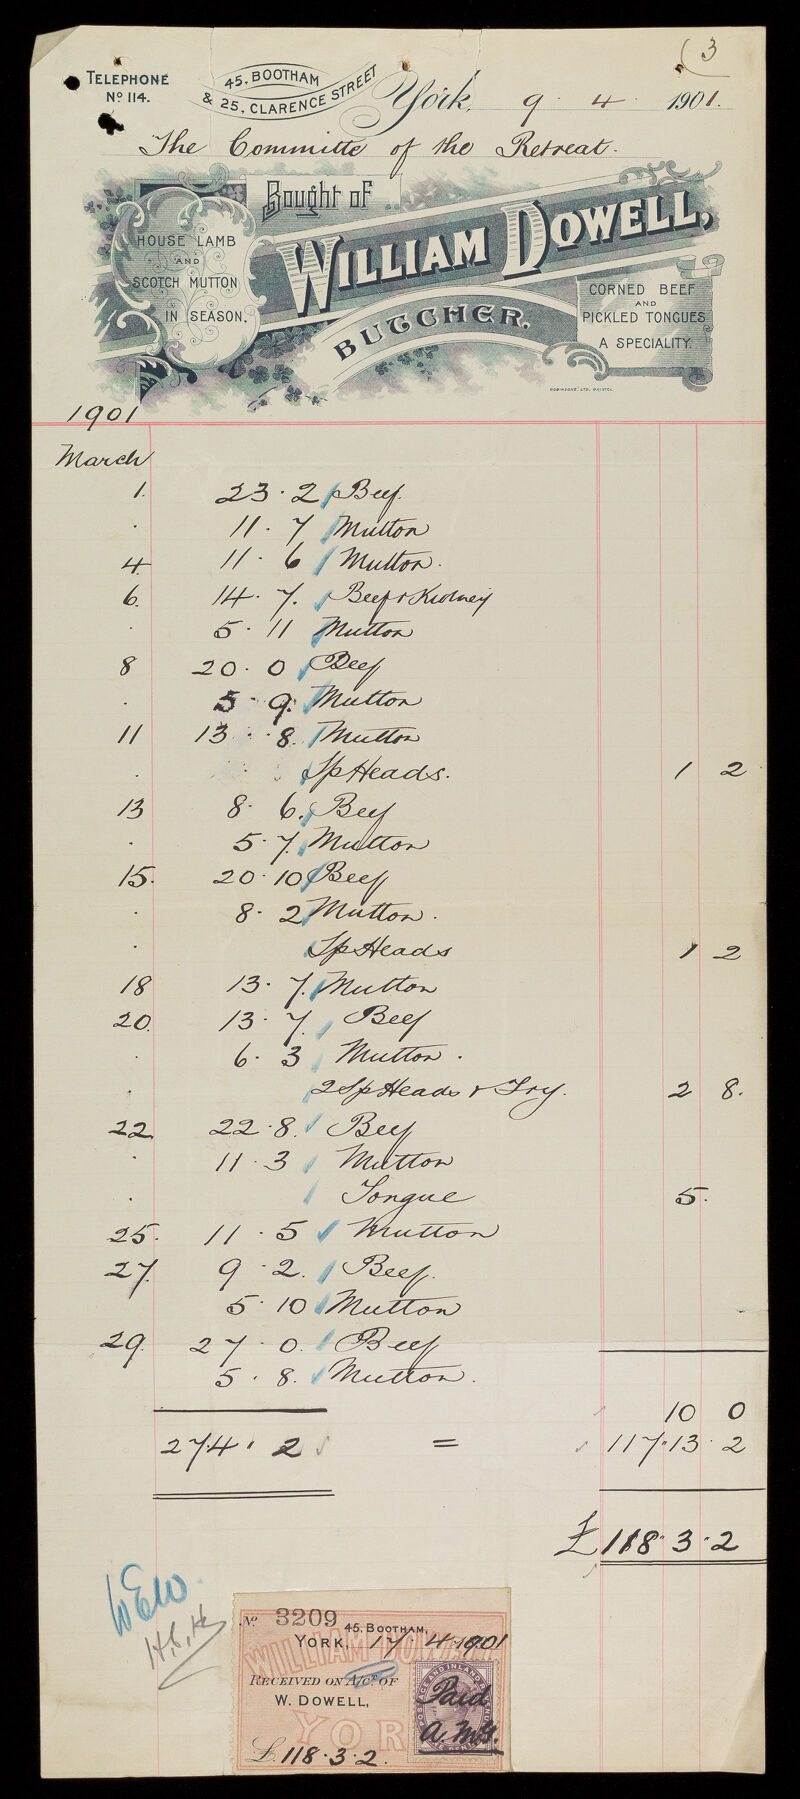 3
TELEPHONE
Nº 114.
45, BOOTHAM
& 25, CLARENCE STREET
York, 9 . 4 . 1901.
The Committe of the Retreat.
Bought of
WILLIAM DOWELL,
BUTCHER.
HOUSE LAMB
AND
SCOTCH MUTTON
IN SEASON.
CORNED BEEF
AND
PICKLED TONGUES
A SPECIALITY.
ROBINSONS' LTD. BRISTOL.
1901
March
1. 23 . 2 Beef.
. 11 . 7 Mutton
4. 11 . 6 Mutton.
6. 14 . 7. Beef & Kidney
. 5 . 11 Mutton
8 20 . 0 Beef
. 5 . 9. Mutton
11 13 . 8. Mutton
. Sp Heads. 1 2
13 8 . 6. Beef
. 5 . 7. Mutton
15. 20 . 10 Beef
. 8 . 2 Mutton.
. Sp Heads 1 2
18 13 . 7. Mutton
20. 13 . 7. Beef
. 6 . 3 Mutton.
. 2 Sp Heads & Fry. 2 8.
22. 22 . 8. Beef
. 11 . 3 Mutton
. Tongue 5.
25. 11 . 5 Mutton
27. 9 . 2. Beef.
5 . 10 Mutton
29. 27 . 0. Beef
5 . 8. Mutton.
10 0
274 . 2 = 117 . 13 . 2
£118 . 3 . 2
WEW.
H.C.H
Nº 3209
45, BOOTHAM,
YORK, 17 4 1901
WILLIAM DOWELL
RECEIVED ON A/CT OF
W. DOWELL,
YORK
£118 . 3 . 2.
POSTAGE AND INLAND REVENUE
Paid